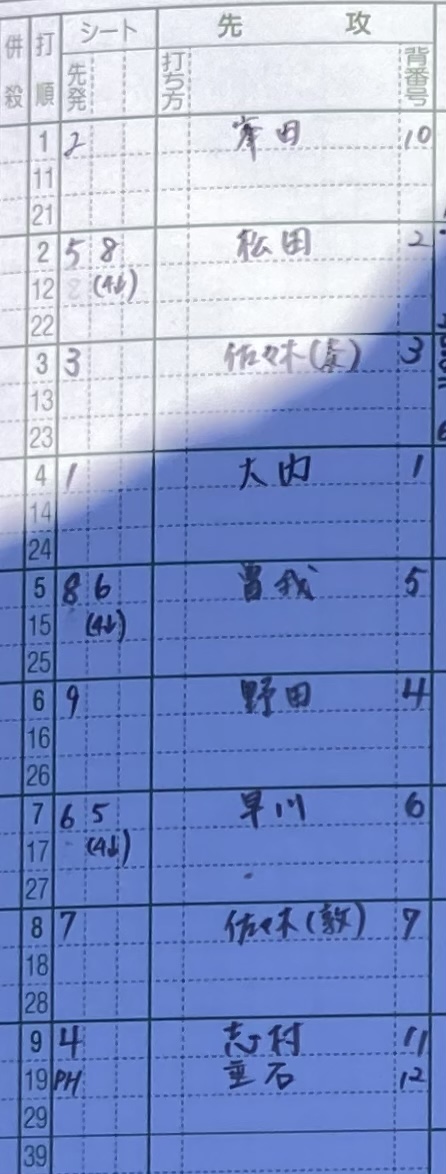 併殺 打順 シート 先攻
先発 打ち方 背番号
1 2 岸田 10
11
21
2 5 8 松田 2
12 (4↓)
22
3 3 佐々木( ) 3
13
23
4 1 大内 1
14
24
5 8 6 曽我 5
15 (4↓)
25
6 9 野田 4
16
26
7 6 5 早川 6
17 (4↓)
27
8 7 佐々木(敦) 7
18
28
9 4 志村 11
19 PH 重石 12
29
39